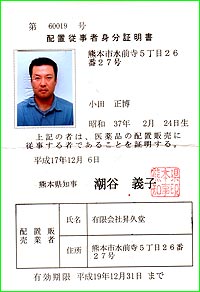 第 60019 号
配置従事者身分証明書
熊本市水前寺5丁目26
番27号
小田 正博
昭和 37年 2月 24日生
上記の者は、医薬品の配置販売に
従事する者であることを証明する。
平成17年12月6日
熊本県知事 潮谷 義子
配置販売業者
氏名 有限会社昇久堂
住所 熊本市水前寺5丁目26番
27号
有効期限 平成19年12月31日 まで